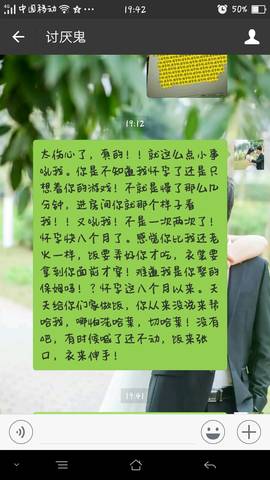 中国移动
19:42
50%
讨厌鬼
19:12
太伤心了,真的!!就这么点小事
吼我。你是不知道我怀孕了还是只
想着你的游戏!不就是慢了那么几
分钟,进房间你就那个样子看
我!!又吼我!不是一次两次了!
怀孕快八个月了。感觉你比我还老
火一样,饭要弄好你才吃,衣裳要
拿到你面前才穿!难道我是你娶的
保姆吗!?怀孕这八个月以来。天
天给你们家做饭,你从来没说来帮
哈我,哪怕洗哈菜,切哈菜!没有
吧,有时候喊了还不动,饭来张
口,衣来伸手!
19:41